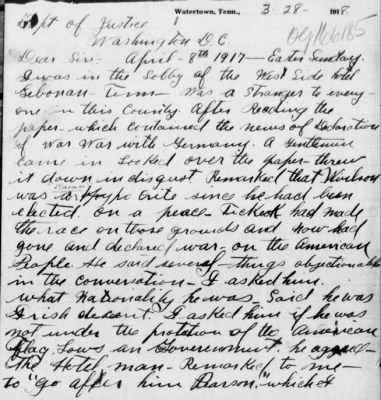 Watertown, Tenn., 3-28- 1918
OG 166185
Dept of Justice
Washington D.C
Dear Sirs: April-8th 1917- Easter Sunday.
I was in the Lobby of the West Side Hotel
Lebonan Tenn- Was a Stranger to every-
one in this County. After Reading the
paper- which contained the news of Declaration
of War War with Germany. A Gentleman
came in Looked over the paper- threw
it down in disgust Remarked that Woodrow
was a Hypocrite since he had been
elected on a peace- Tickeck had made
the race on those grounds and now had
gone and declared war- on the American
People. He said several- things objectionable
in the conversation- I asked him.
what Nationality he was. Said he was
Irish descent. I asked him if he was
not under the protation of the American
flag Laws an Government. he agreed-
The Hotel man- Remarked to me-
to "go after him Parson," which I